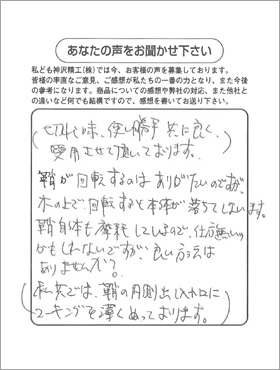 あなたの声をお聞かせ下さい
私ども神沢精工(株)では今、お客様の声を募集しております。
皆様の率直なご意見、ご感想が私たちの一番の力となり、また今後
の参考になります。商品についての感想や弊社の対応、また他社と
の違いなど何でも結構ですので、ご感想を書いてお送り下さい。
(切れ味、使い勝手共に良く、
愛用させて頂いております。)
鞘が回転するのはありがたいのですが、
木の上で、回転すると本体が落ちてしまいます。
鞘自体も摩耗してしまうので、仕方無いの
かもしれないですが、良い方法は
ありませんか。
(私共では、鞘の内側出し入れ口に
コーキングを薄くぬっております。)